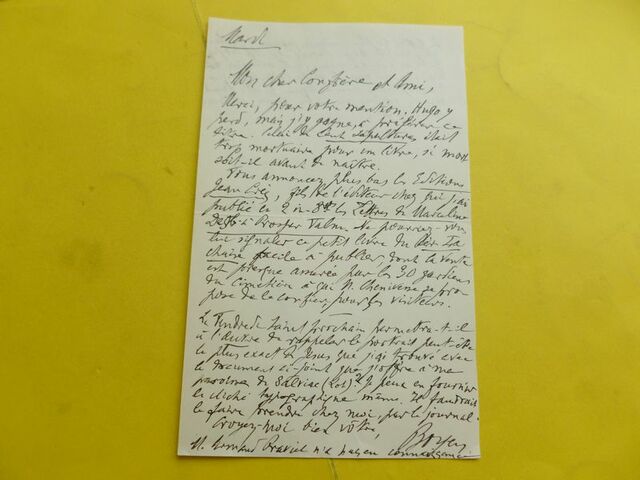 Mardi
Mon cher Confrère et Ami,
Merci, pour votre mention. Hugo y
perd, mais j'y gagne, à préférer ce
titre. Celui de Cent sépultures était
trop mortuaire pour un livre, si mort
soit-il avant de naître.
Vous annoncez plus bas les Editions
Jean Crès, fils de l'éditeur chez qui j'ai
publié en 2 in-8º les Lettres de Marceline
à Prosper Valmore. Ne pourrez-vous
lui signaler ce petit livre du Père La
chaise facile à publier, dont la vente
est presque assurée par les 30 gardiens
du Cimetière à qui M. se pro
pose de le confier, pour les visiteurs.
Le Vendredi Saint prochain permettra-t-il
à l'autre de rappeler le portrait peut-être
le plus exact de Jésus que j'ai trouvé avec
le document ci-joint que j'offre à me
paroisse de (Lot)? Je peux en fournir
le cliché typographique même. Il faudrait
le faire prendre chez moi, par le journal.
Croyez-moi bien vôtre,
Boyer
M. Armand Praviel n'a pas eu connaissance